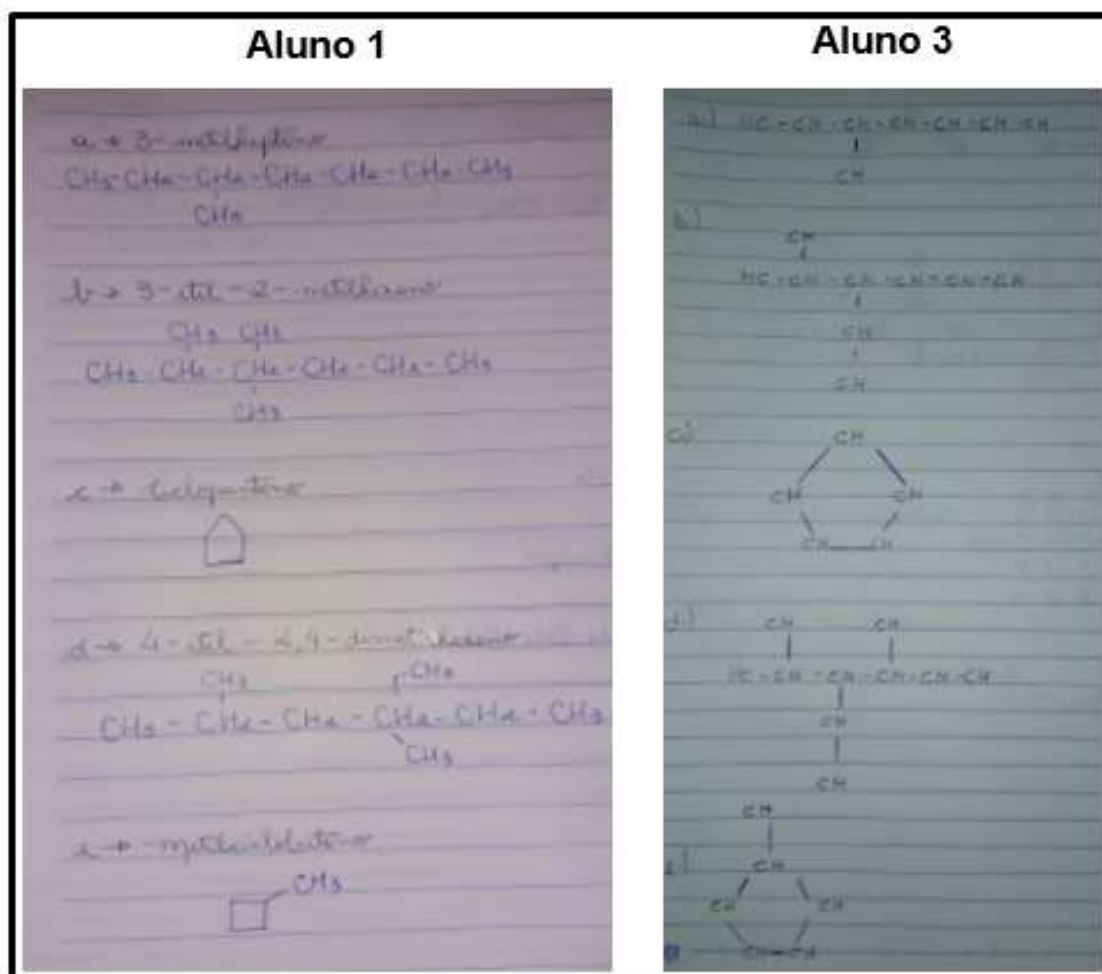 Aluno 1
a → 3-metilheptano
CH3-CH2-CH2-CH2-CH2-CH2-CH3
CH3
b → 3-etil-2-metilhexano
CH3 CH3
CH3-CH2-CH2-CH2-CH2-CH3
CH3
c →
d → 4-etil-2,4-
CH3 CH3
CH3-CH2-CH2-CH2-CH2-CH3
CH3
CH3
Aluno 3
a) HC-CH-CH-CH-CH-CH-CH
CH
b)
CH
HC-CH-CH-CH-CH-CH
CH
CH
c)
CH
CH CH
CH CH
d)
CH CH
HC-CH-CH-CH-CH-CH
CH
CH
CH
CH
CH CH
CH-CH